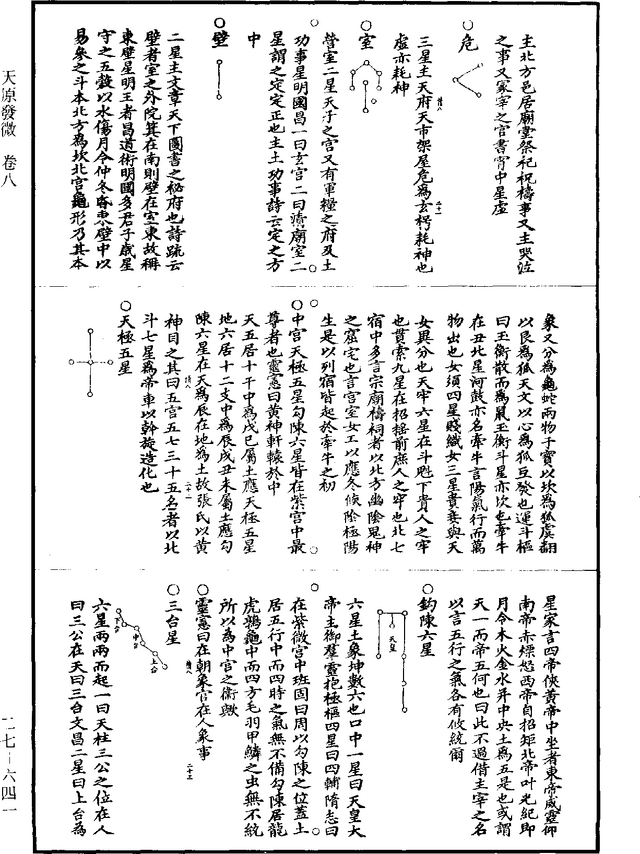 主北方邑居廟堂祭祀祝禱事又主哭泣
之事又冢宰之官書宵中星虛
危
三星主天府天市架屋危為玄枵耗神也
虛亦耗神
室
營室二星天子之宮又有軍糧之府及土
功事星明國昌一曰玄宮二曰清廟室二
星謂之定定正也主土功事詩云定之方
中
壁
二星主文章天下圖書之秘府也詩疏云
壁者室之外院箕在南則壁在室東故稱
東壁星明王者昌道術明國多君子歲星
守之五穀以水傷月令仲冬昏東壁中以
易象之斗本北方為坎北宮龜形乃其本
象又分為龜蛇兩物子寶以坎為狐虞翻
以艮為狐天文以心為狐亙癸也運斗樞
曰玉衡散而為鼠玉衡斗星亦坎也牽牛
在丑北星河鼓亦名牽牛言陽氣行而萬
物出也女須四星賤織女三星貴妾與天
女異分也天牢六星在斗魁下貴人之牢
也貫索九星在招揺前庶人之牢也北七
宿中多言宗廟禱祠者以北方幽陰鬼神
之窟宅也言宮室女工以應冬候陰極陽
生是以列宿皆起於牽牛之初
中宮天極五星勾陳六星皆在紫宮中最
尊者也靈憲曰黃神軒轅於中
天五居十干中為戊巳屬土應天極五星
地六居十二支中為辰戌丑未屬土應勾
陳六星在天為辰在地為土故張氏以黃
神目之其曰五宮五七三十五名者以北
斗七星為帝車以斡旋造化也
天極五星
星家言四帝俠黃帝中坐者東帝威靈仰
南帝赤熛怒西帝白招矩北帝叶光紀即
月令木火金水并中央土為五是也或謂
天一而帝五何也曰此不過借主宰之名
以言五行之氣各有攸統爾
鈎陳六星
天皇
六星土象坤數六也口中一星曰天皇大
帝主御羣靈抱極樞四星曰四輔隋志曰
在紫微宮中班固曰周以勾陳之位蓋土
居五行中而四時之氣無不備勾陳居龍
虎鶉龜中而四方毛羽甲鱗之虫無不統
所以為中宮之衞歟
靈憲曰在朝象官在人象事
三台星
上台
中台
下台
六星兩兩而起一曰天柱三公之位在人
曰三公在天曰三台文昌二星曰上台為
天原發微 卷八
二七-六四一